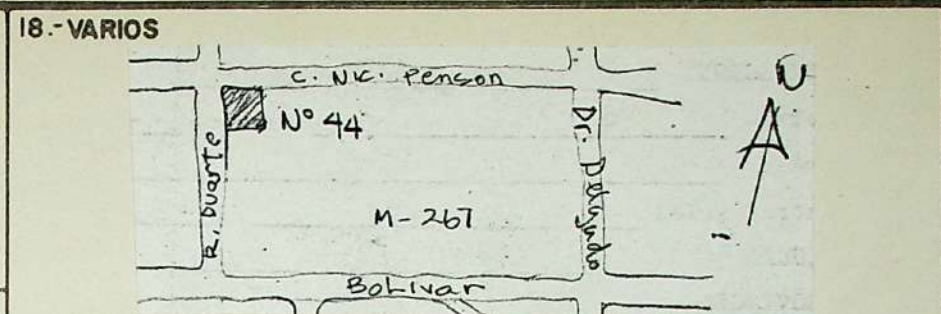 18.-VARIOS
C. Nic. Penson
N
Nº 44
R. Duarte
Dr. Delgado
M-267
Bolivar